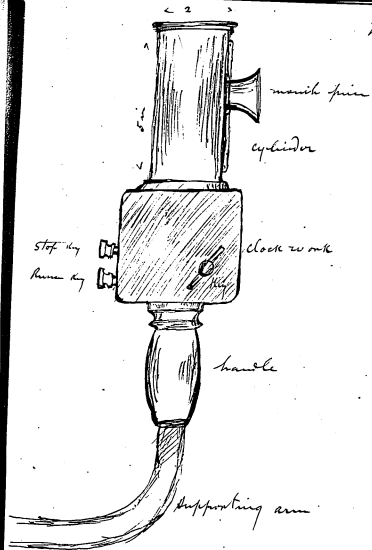 2
5 in
mouth piece
cylinder
Stop Key
clock work
Key
handle
supporting arm